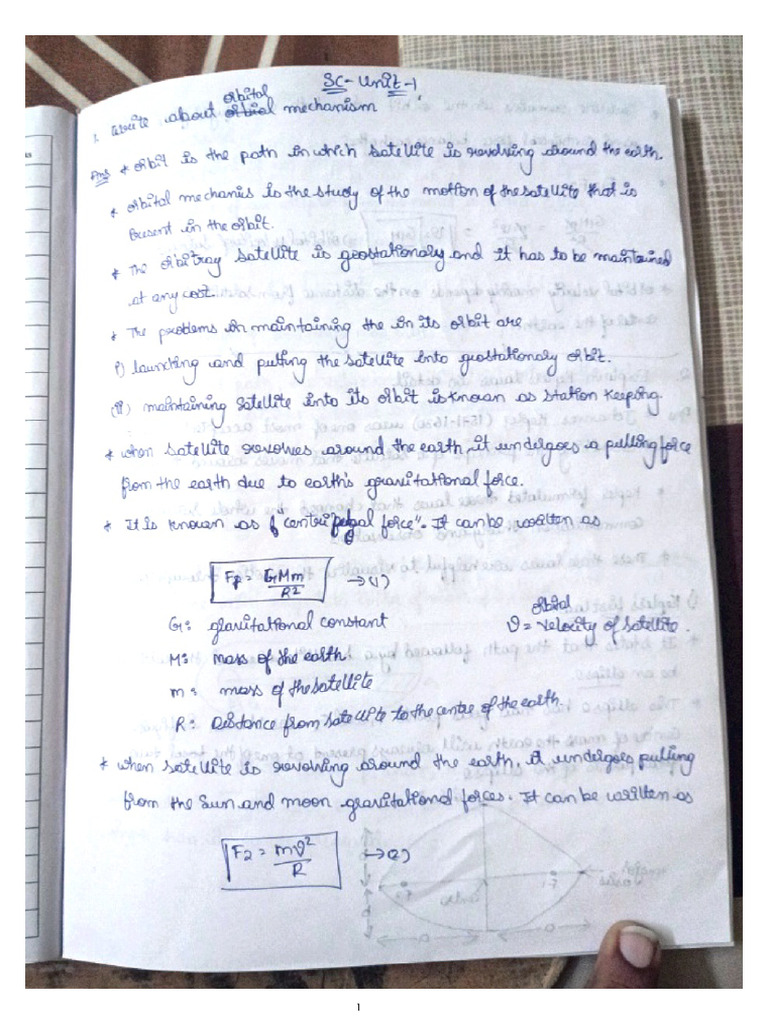 SC - Unit - 1
1. Write about orbital mechanism
Ans * orbit is the path in which satellite is revolving around the earth.
* orbital mechanis is the study of the motion of the satellite that is
Present in the orbit.
* The orbitray satellite is geostationary and it has to be maintained
at any cost.
* The problems in maintaining the in its orbit are
i) launching and putting the satellite into geostationary orbit.
(ii) maintaining satellite into its orbit is known as station keeping.
* when satellite revolves around the earth, it undergoes a pulling force
from the earth due to earth's gravitational force.
* It is known as "centripetal force". It can be written as
F₁ = GMm/R² → (1)
G: gravitational constant
orbital
v = velocity of satellite.
M: mass of the earth
m: mass of the satellite
R: Distance from satellite to the centre of the earth.
* when satellite is revolving around the earth, it undergoes pulling
from the sun and moon gravitational forces. It can be written as
F2 = mv²/R → (2)
1